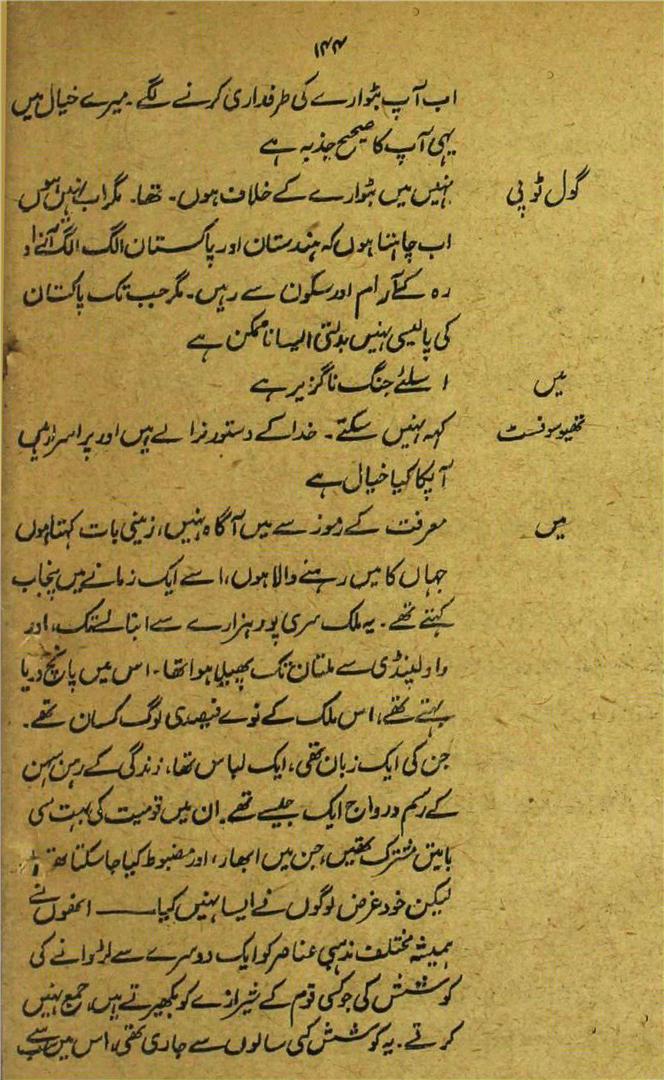 ۱۴۴
اب آپ بٹوارے کی طرفداری کرنے لگے۔ میرے خیال میں
یہی آپ کا صحیح جذبہ ہے
گول ٹوپی نہیں میں بٹوارے کے خلاف ہوں۔ تھا۔ مگر اب نہیں ہوں
اب چاہتا ہوں کہ ہندستان اور پاکستان الگ الگ آزاد
رہ کے آرام اور سکون سے رہیں۔ مگر جب تک پاکستان
کی پالیسی نہیں بدلتی ایسا ناممکن ہے
میں اسلئے جنگ ناگزیر ہے
تھیوسوفسٹ کہہ نہیں سکتے۔ خدا کے دستور نرالے ہیں اور پراسرار ہیں
آپکا کیا خیال ہے
میں معرفت کے رموز سے میں آگاہ نہیں، زمینی بات کہتا ہوں
جہاں کا میں رہنے والا ہوں، اسے ایک زمانے میں پنجاب
کہتے تھے۔ یہ ملک ہری پور ہزارے سے انبالے تک، اور
راولپنڈی سے ملتان تک پھیلا ہوا تھا۔ اس میں پانچ دریا
بہتے تھے، اس ملک کے نوے فیصدی لوگ کسان تھے۔
جن کی ایک زبان تھی، ایک لباس تھا، زندگی کے رہن سہن
کے رسم و رواج ایک جیسے تھے۔ ان میں قومیت کی بہت سی
باتیں مشترک تھیں، جن میں ابھارا، اور مضبوط کیا جا سکتا تھا
لیکن خود غرض لوگوں نے ایسا نہیں کیا —— انھوں نے
ہمیشہ مختلف مذہبی عناصر کو ایک دوسرے سے لڑوانے کی
کوشش کی جو کسی قوم کے شیرازے کو بکھیرتے ہیں، جمع نہیں
کرتے۔ یہ کوشش کئی سالوں سے جاری تھی، اس میں سب